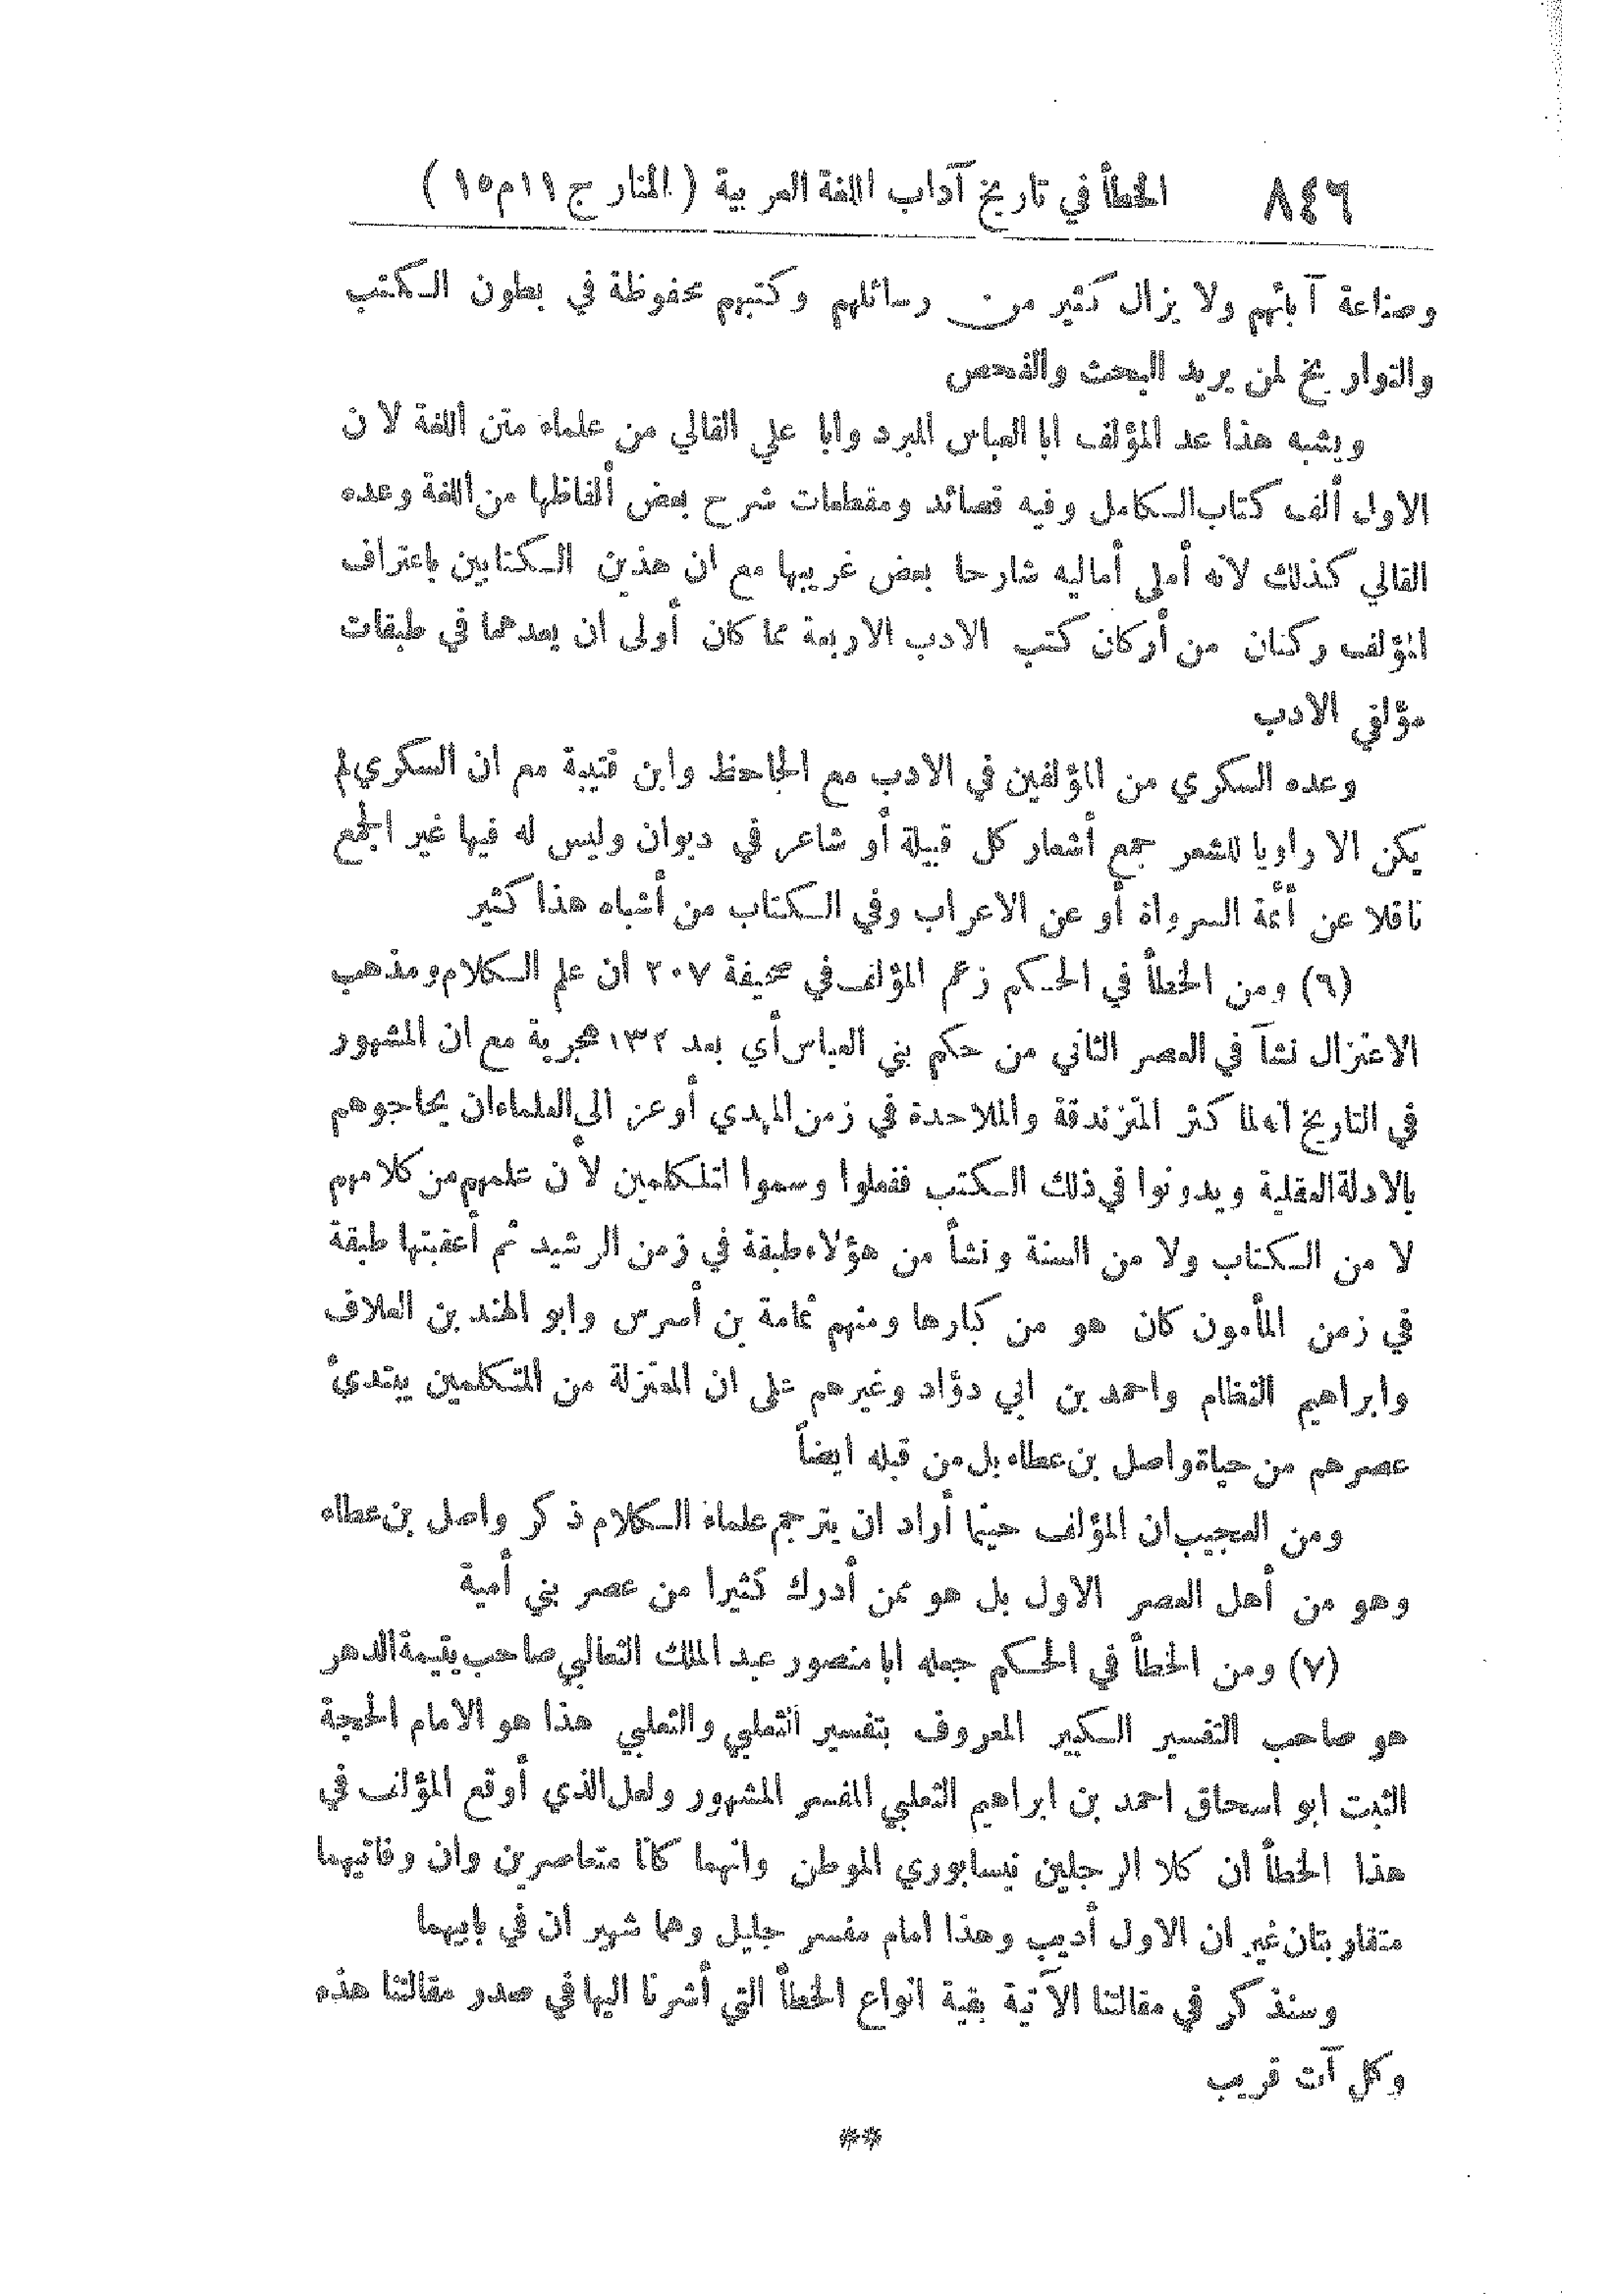 ٨٤٦ الخطأ في تاريخ آداب اللغة العربية ( المنار ج ١١ م ١٥ )
وصناعة آبائهم ولا يزال كثير من رسائلهم وكتبهم محفوظة في بطون الكتب
والتواريخ لمن يريد البحث والفحص
ويشبه هذا عد المؤلف ابا العباس المبرد وابا علي القالي من علماء متن اللغة لان
الاول ألف كتاب الكامل وفيه قصائد ومقطعات شرح بعض ألفاظها من اللغة وعده
القالي كذلك لانه أملى أماليه شارحا بعض غريبها مع ان هذين الكتابين باعتراف
المؤلف ركنان من أركان كتب الادب الاربعة مما كان أولى ان يعدهما في طبقات
مؤلفي الادب
وعده السكري من المؤلفين في الادب مع الجاحظ وابن قتيبة مع ان السكري لم
يكن الا راويا للشعر جمع أشعار كل قبيلة أو شاعر في ديوان وليس له فيها غير الجمع
ناقلا عن أئمة الرواة أو عن الاعراب وفي الكتاب من أشباه هذا كثير
(٦) ومن الخطأ في الحكم زعم المؤلف في صحيفة ٢٠٧ ان علم الكلام ومذهب
الاعتزال نشآ في العصر الثاني من حكم بني العباس أي بعد ١٣٢ هجرية مع ان المشهور
في التاريخ انه لما كثر المتزندقة والملاحدة في زمن المهدي أوعز الى العلماء ان يحاجوهم
بالادلة العقلية ويدونوا في ذلك الكتب ففعلوا وسموا المتكلمين لأن علمهم من كلامهم
لا من الكتاب ولا من السنة ونشأ من هؤلاء طبقة في زمن الرشيد ثم أعقبتها طبقة
في زمن المأمون كان هو من كبارها ومنهم ثمامة بن أسرس وابو الهند بن العلاف
وابراهيم النظام واحمد بن ابي دؤاد وغيرهم على ان المعتزلة من المتكلمين يبتدئ
عصرهم من حياة واصل بن عطاء بل من قبله ايضاً
ومن العجيب ان المؤلف حينما أراد ان يترجم علماء الكلام ذكر واصل بن عطاء
وهو من أهل العصر الاول بل هو ممن أدرك كثيرا من عصر بني أمية
(٧) ومن الخطأ في الحكم جعله ابا منصور عبد الملك الثعالبي صاحب يقيمة الدهر
هو صاحب التفسير الكبير المعروف بتفسير الثعلبي والثعلبي هذا هو الامام الحجة
الثبت ابو اسحاق احمد بن ابراهيم الثعلبي المفسر المشهور ولعل الذي أوقع المؤلف في
هذا الخطأ ان كلا الرجلين نيسابوري الموطن وانهما كانا متعاصرين وان وفاتيهما
متقاربتان غير ان الاول أديب وهذا امام مفسر جليل وهما شهيران في بابيهما
وسنذكر في مقالتنا الآتية بقية انواع الخطأ التي أشرنا اليها في صدر مقالتنا هذه
وكل آت قريب
**